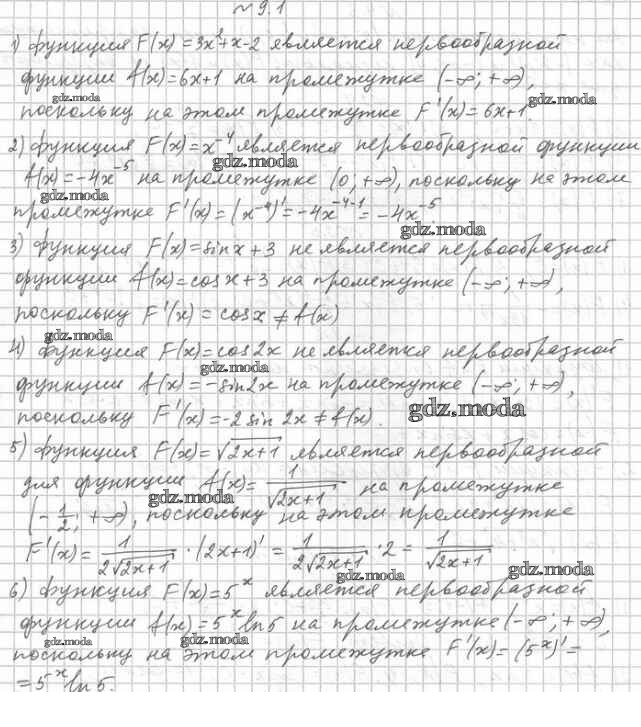 № 9.1
1) функция F(x) = 3x²+x-2 является первообразной
функции f(x)=6x+1 на промежутке (-∞; +∞),
gdz.moda
gdz.moda
поскольку на этом промежутке F'(x) = 6x+1.
2) функция F(x)=x⁻⁴ является первообразной функции
gdz.moda
f(x) = -4x⁻⁵ на промежутке (0; +∞), поскольку на этом
gdz.moda
промежутке F'(x) = (x⁻⁴)' = -4x⁻⁴⁻¹ = -4x⁻⁵
gdz.moda
3) функция F(x)=sinx+3 не является первообразной
функции f(x)=cosx+3 на промежутке (-∞; +∞),
поскольку F'(x) = cosx ≠ f(x)
gdz.moda
4) функция F(x)=cos2x не является первообразной
gdz.moda
функции f(x) = -sin2x на промежутке (-∞; +∞),
поскольку F'(x) = -2 sin 2x ≠ f(x).
gdz.moda
5) функция F(x) = √(2x+1) является первообразной
для функции f(x) = 1/√(2x+1) на промежутке
gdz.moda
(-1/2; +∞), поскольку на этом промежутке
F'(x) = 1/(2√(2x+1)) · (2x+1)' = 1/(2√(2x+1)) · 2 = 1/√(2x+1)
gdz.moda
gdz.moda
6) функция F(x)=5ˣ является первообразной
функции f(x) = 5ˣ ln5 на промежутке (-∞; +∞),
gdz.moda
gdz.moda
поскольку на этом промежутке F'(x) = (5ˣ)' =
= 5ˣ ln5.